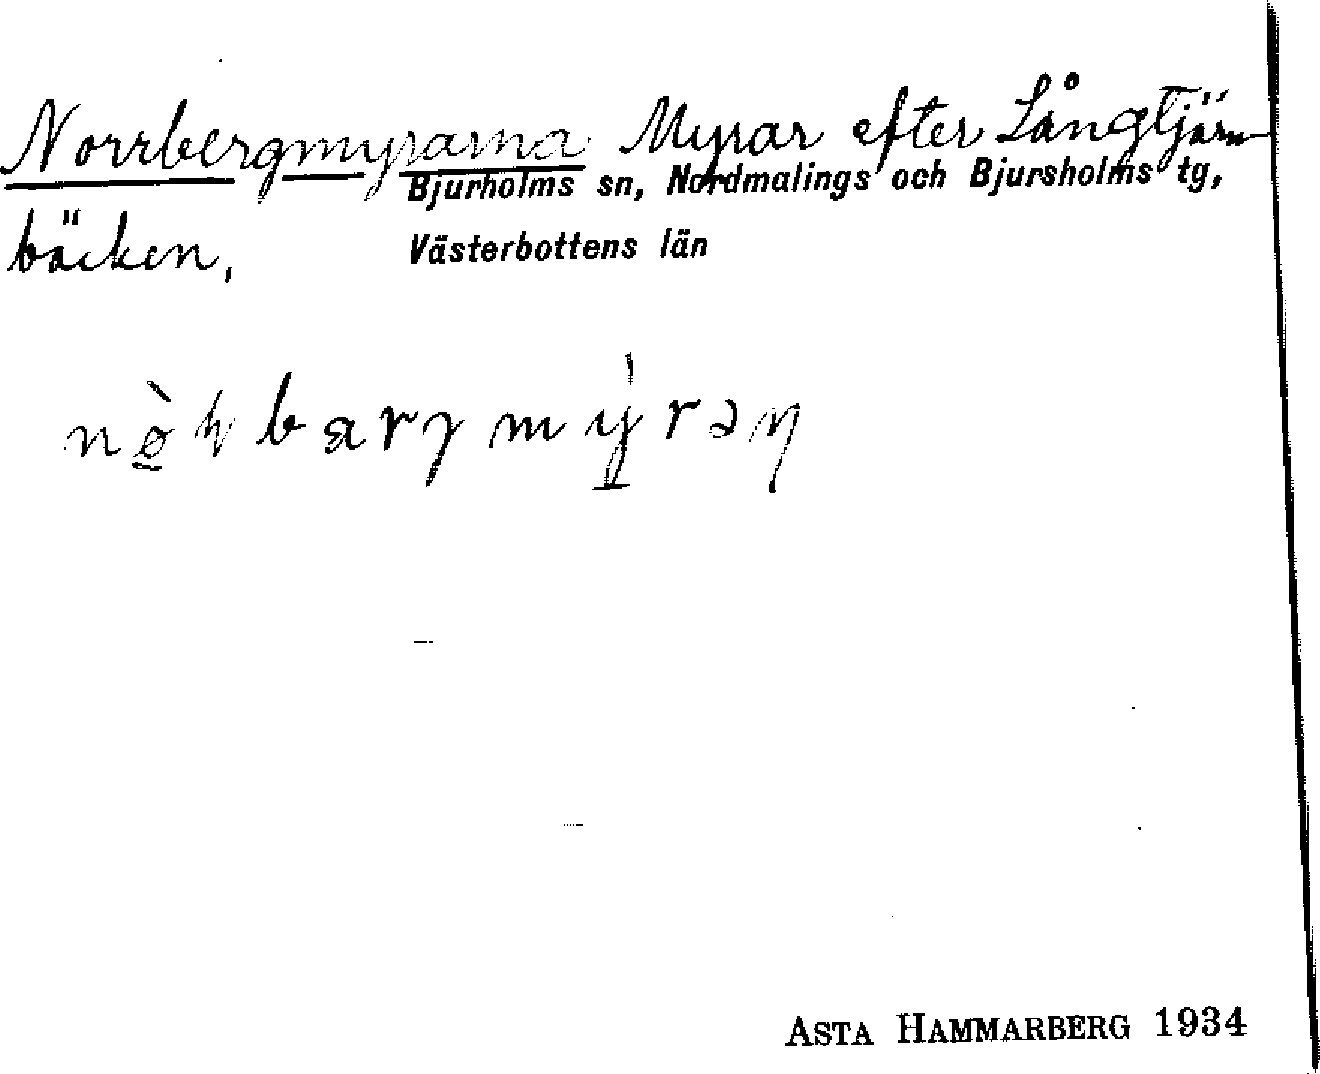 Norrbergmyrarna Myrar efter Långtjärn-
Bjurholms sn, Nordmalings och Bjursholms tg,
bäcken,
Västerbottens län
ASTA HAMMARBERG 1934